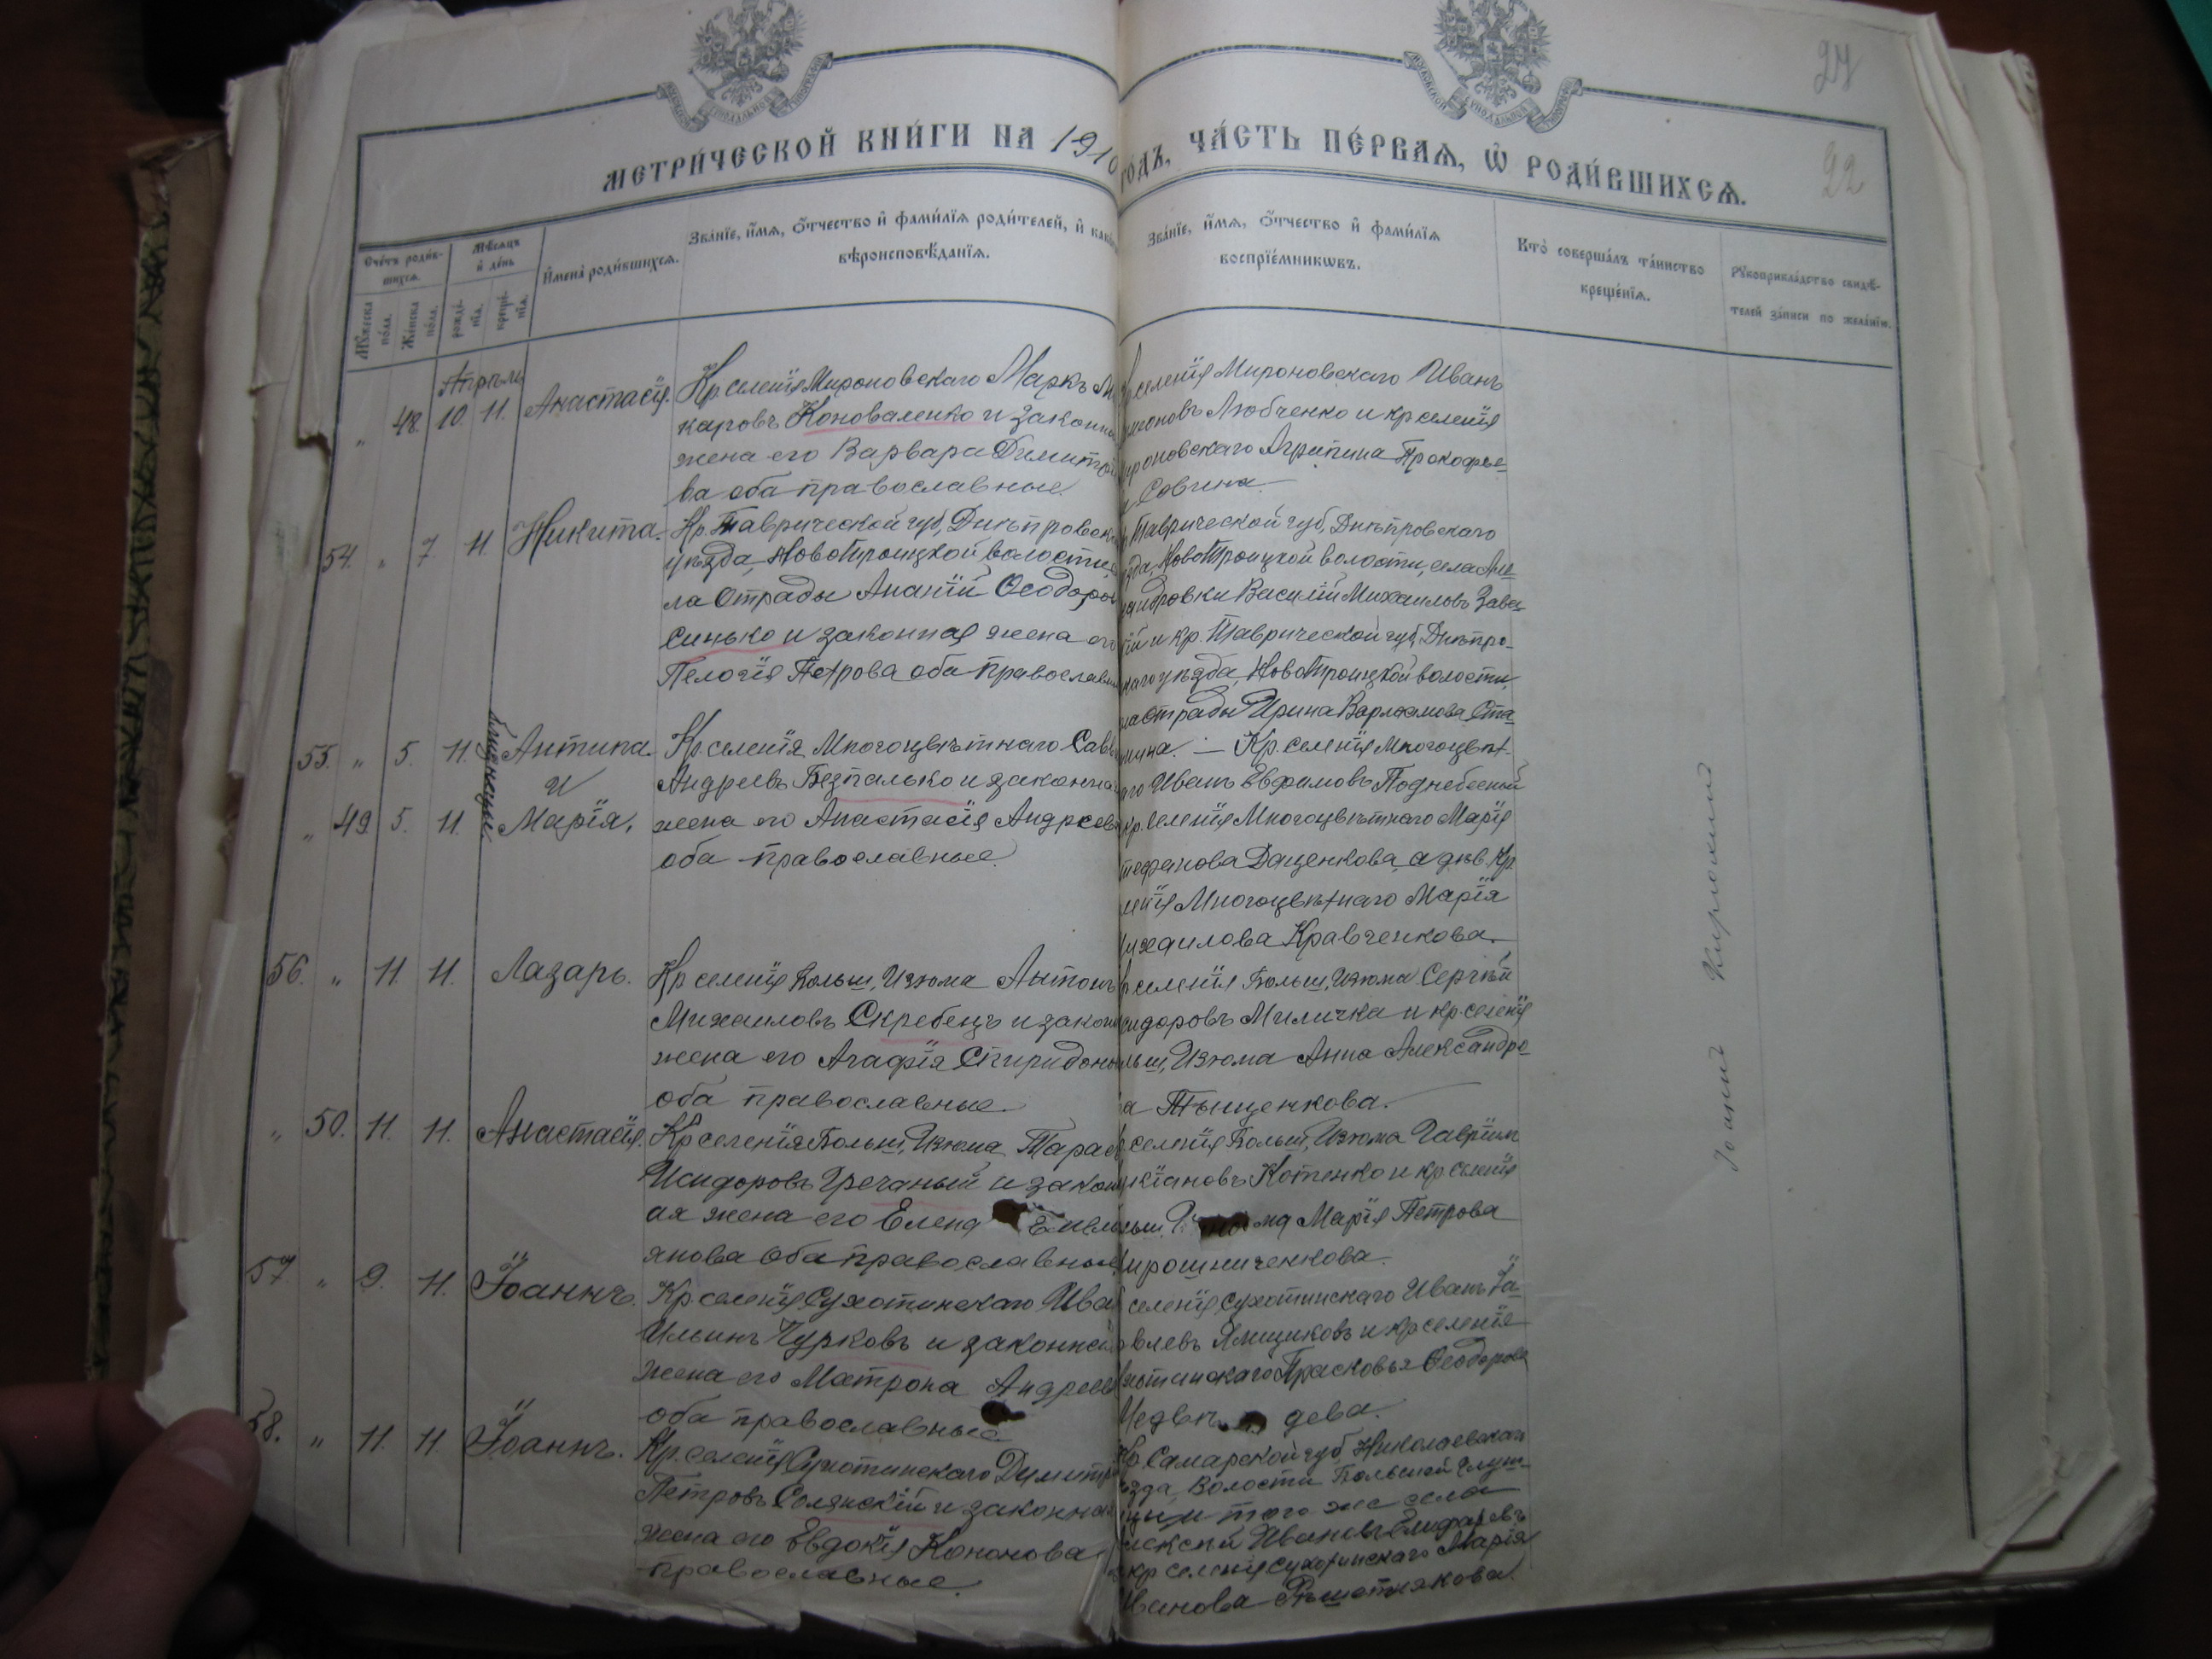 27
22
МЕТРИ́ЧЕСКОЙ КНИ́ГИ НА 1910
ГОДЪ, ЧА́СТЬ ПЕ́РВАѦ, Ѡ҆ РОДИ́ВШИХСѦ.
Сче́тъ роди́в-
шихсѧ.
Мꙋ́жеска по́ла.
Же́нска по́ла.
Мѣ́сѧцъ
и де́нь
рожде́-
нїѧ.
креще́-
нїѧ.
И҆мена̀ роди́вшихсѧ.
Зва́нїе, и҆́мѧ, ѻ҆́тчество и҆ фами́лїѧ роди́телей, и҆
вѣроисповѣ́данїѧ.
Зва́нїе, и҆́мѧ, ѻ҆́тчество и҆ фами́лїѧ
воспрїе́мникѡвъ.
Кто̀ соверша́лъ та́инство
креще́нїѧ.
Рꙋкоприкла́дство свидѣ́-
телей за́писи по жела́нїю.
Апрѣль
„ 48. 10. 11. Анастасія.
Кр. селенія Мироновскаго Маркъ Ма
каровъ Коноваленко и законна
жена его Варвара Димитрі
ва оба православные.
селенія Мироновскаго Иванъ
Любченко и кр селенія
ироновскаго Агрипина Прокофье-
Совгина.
54. „ 7. 11. Никита.
Кр. Таврической губ, Днѣпровск
уѣзда, НовоТроицкой волости, с
ла Отрады Ананій Ѳеодоров
Синько и законная жена его
Пелогія Петрова оба православн
Таврической губ, Днѣпровскаго
зда, НовоТроицкой волости, села Але-
андровки Василій Михаиловъ Зава-
ій и кр. Таврической губ, Днѣпро-
каго уѣзда, НовоТроицкой волости,
ла Отрады Ирина Варлаамова Ста-
55. „ 5. 11. Антипа
и
близнецы
„ 49 5. 11. Марія,
Кр. селенія Многоцвѣтнаго Савв
Андреевъ Безпалько и законна
жена его Анастасія Андреев
оба православные.
Кр. селенія Многоцвѣт-
аго Иванъ Евфимовъ Поднебесный
кр. селенія Многоцвѣтнаго Марія
тефанова Даценкова, а дѣв. Кр.
енія Многоцвѣтнаго Марія
ихаилова Кравченкова.
56. „ 11. 11. Лазарь.
Кр селенія Больш, Изюма Антонъ
Михаиловъ Скребецъ и закон
жена его Агафія Спиридоно
оба православные.
селенія Больш, Изюма Сергѣй
сидоровъ Миличка и кр. селенія
льш, Изюма Анна Александро-
а Тыщенкова.
„ 50. 11. 11. Анастасія.
Кр селенія Больш, Изюма Тарас
Исидоровъ Гречаный и закон
ая жена его Елена Емели
янова оба православные
селенія Больш, Изюма Гавріилъ
Котенко и кр селенія
льш, ма Марія Петрова
ирошниченкова.
57 „ 9. 11. Іоаннъ.
Кр. селенія Сухотинскаго Ива
Ильинъ Чурковъ и законная
жена его Матрона Андреев
оба православные
селенія Сухотинскаго Иванъ Іа-
влевъ Ямщиковъ и кр селенія
хотинскаго Прасковья Ѳеодорова
Медвѣ дева.
58. „ 11. 11. Іоаннъ.
Кр. селенія Сухотинскаго Димитрі
Петровъ Солянскій и законная
жена его Евдокія Кононова
православные.
Кр. Самарской губ, Николаевскаго
зда, Волости Большой Глуш-
цы и того же села
Ивановъ
кр селенія Сухотинскаго Марія
Иванова Рѣшетникова.
Іоаннъ